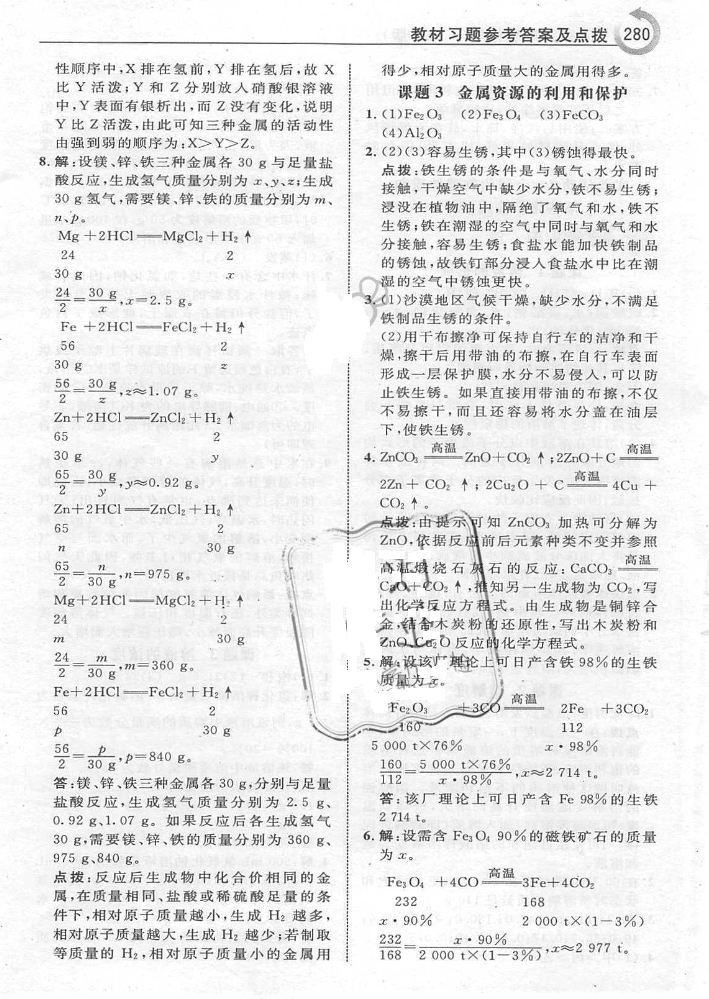 教材习题参考答案及点拨 280
性顺序中,X 排在氢前,Y 排在氢后,故 X
比 Y 活泼;Y 和 Z 分别放入硝酸银溶液
中,Y 表面有银析出,而 Z 没有变化,说明
Y 比 Z 活泼,由此可知三种金属的活动性
由强到弱的顺序为:X>Y>Z。
8. 解:设镁、锌、铁三种金属各 30 g 与足量盐
酸反应,生成氢气质量分别为 x、y、z;生成
30 g 氢气,需要镁、锌、铁的质量分别为 m、
n、p。
Mg +2HCl══MgCl₂+H₂↑
24 2
30 g x
24/2=30 g/x,x=2.5 g。
Fe +2HCl══FeCl₂+H₂↑
56 2
30 g z
56/2=30 g/z,z≈1.07 g。
Zn+2HCl══ZnCl₂+H₂↑
65 2
30 g y
65/2=30 g/y,y≈0.92 g。
Zn+2HCl══ZnCl₂+H₂↑
65 2
n 30 g
65/2=n/30 g,n=975 g。
Mg+2HCl══MgCl₂+H₂↑
24 2
m 30 g
24/2=m/30 g,m=360 g。
Fe+2HCl══FeCl₂+H₂↑
56 2
p 30 g
56/2=p/30 g,p=840 g。
答:镁、锌、铁三种金属各 30 g,分别与足量
盐酸反应,生成氢气质量分别为 2.5 g、
0.92 g、1.07 g。如果反应后各生成氢气
30 g,需要镁、锌、铁的质量分别为 360 g、
975 g、840 g。
点拨:反应后生成物中化合价相同的金
属,在质量相同、盐酸或稀硫酸足量的条
件下,相对原子质量越小,生成 H₂ 越多,
相对原子质量越大,生成 H₂ 越少;若制取
等质量的 H₂,相对原子质量小的金属用
得少,相对原子质量大的金属用得多。
课题 3 金属资源的利用和保护
1. (1)Fe₂O₃ (2)Fe₃O₄ (3)FeCO₃
(4)Al₂O₃
2. (2)(3)容易生锈,其中(3)锈蚀得最快。
点拨:铁生锈的条件是与氧气、水分同时
接触,干燥空气中缺少水分,铁不易生锈;
浸没在植物油中,隔绝了氧气和水,铁不
生锈;铁在潮湿的空气中同时与氧气和水
分接触,容易生锈;食盐水能加快铁制品
的锈蚀,故铁钉部分浸入食盐水中比在潮
湿的空气中生锈更快。
3. (1)沙漠地区气候干燥,缺少水分,不满足
铁制品生锈的条件。
(2)用干布擦净可保持自行车的洁净和干
燥,擦干后用带油的布擦,在自行车表面
形成一层保护膜,水分不易侵入,可以防
止铁生锈。如果直接用带油的布擦,不仅
不易擦干,而且还容易将水分盖在油层
下,使铁生锈。
4. ZnCO₃ ══高温══ ZnO+CO₂↑;2ZnO+C ══高温══
2Zn + CO₂↑;2Cu₂O + C ══高温══ 4Cu +
CO₂↑。
点拨:由提示可知 ZnCO₃ 加热可分解为
ZnO,依据反应前后元素种类不变并参照
高温煅烧石灰石的反应:CaCO₃ ══高温══
CaO+CO₂↑,推知另一生成物为 CO₂,写
出化学反应方程式。由生成物是铜锌合
金,结合木炭粉的还原性,写出木炭粉和
ZnO、Cu₂O 反应的化学方程式。
5. 解:设该厂理论上可日产含铁 98%的生铁
质量为 x。
Fe₂O₃ +3CO ══高温══ 2Fe +3CO₂
160 112
5 000 t×76% x·98%
160/112=5 000 t×76%/x·98%,x≈2 714 t。
答:该厂理论上可日产含 Fe 98%的生铁
2 714 t。
6. 解:设需含 Fe₃O₄ 90%的磁铁矿石的质量
为 x。
Fe₃O₄ +4CO ══高温══ 3Fe+4CO₂
232 168
x·90% 2 000 t×(1-3%)
232/168=x·90%/2 000 t×(1-3%),x≈2 977 t。